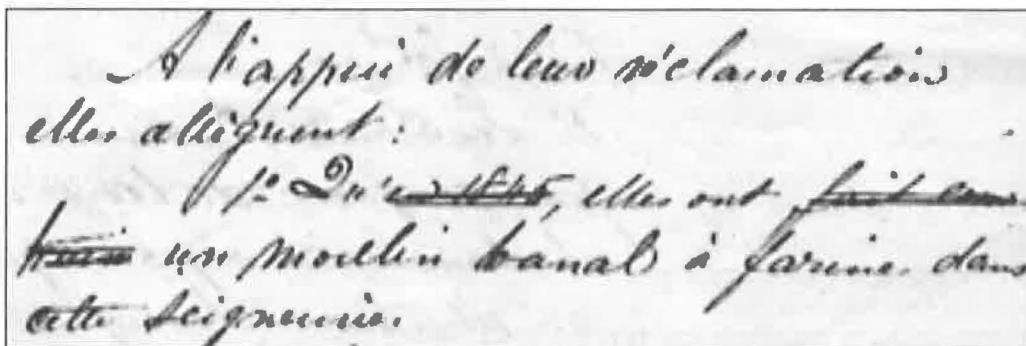 A l'appui de leur réclamation
elles allèguent :
1º Qu'en 1845, elles ont fait cons
truire un moulin banal à farine dans
cette Seigneurie.